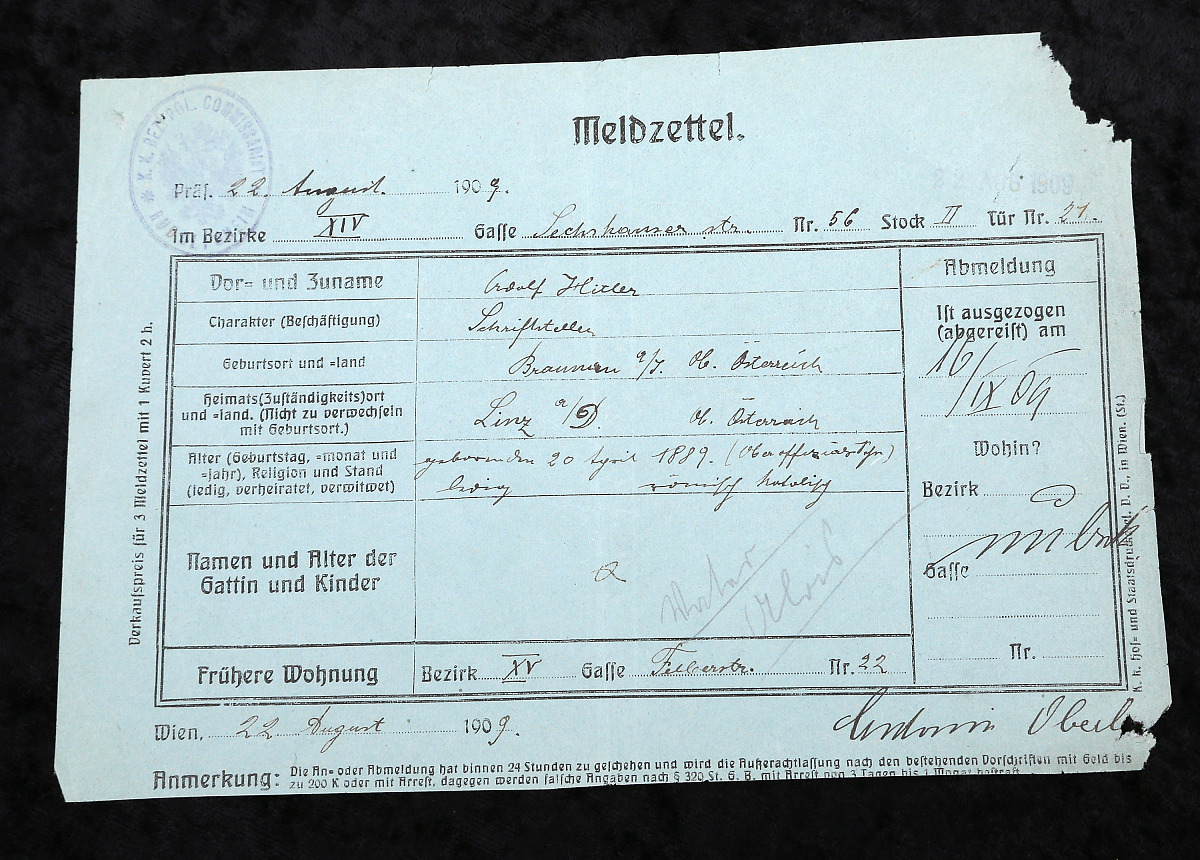 K. K. BEZ. POL. COMMISSARIAT
Meldzettel.
Präs. 22. August. 1909.
AUG 1909
Im Bezirke XIV Gasse Sechshauser str. Nr. 56 Stock II Tür Nr. 21.
Vor= und Zuname Adolf Hitler
Charakter (Beschäftigung) Schriftsteller
Geburtsort und =land Braunau a/I. Ob. Österreich
Heimats(Zuständigkeits)ort
und =land. (Nicht zu verwechseln
mit Geburtsort.)
Linz a/D. O. Österreich
Alter (Geburtstag, =monat und
=jahr), Religion und Stand
(ledig, verheiratet, verwitwet)
geboren den 20 April 1889. (
ledig römisch katolisch
Namen und Alter der
Gattin und Kinder
Vater
Alois
Frühere Wohnung Bezirk XV Gasse Felberstr. Nr. 22
Abmeldung
Ist ausgezogen
(abgereist) am
16/IX 09
Wohin?
Bezirk
Gasse
Nr.
Wien, 22 August 1909.
Antonie Oberl
Anmerkung: Die An= oder Abmeldung hat binnen 24 Stunden zu geschehen und wird die Außerachtlassung nach den bestehenden Vorschriften mit Geld bis
zu 200 K oder mit Arrest, dagegen werden falsche Angaben nach § 320 St. G. B. mit Arrest von 3 Tagen bis 1 Monat bestraft.
Verkaufspreis für 3 Meldzettel mit 1 Kuvert 2 h.
K. k. Hof= und Staatsdruckerei. D. D., in Wien. (St.)